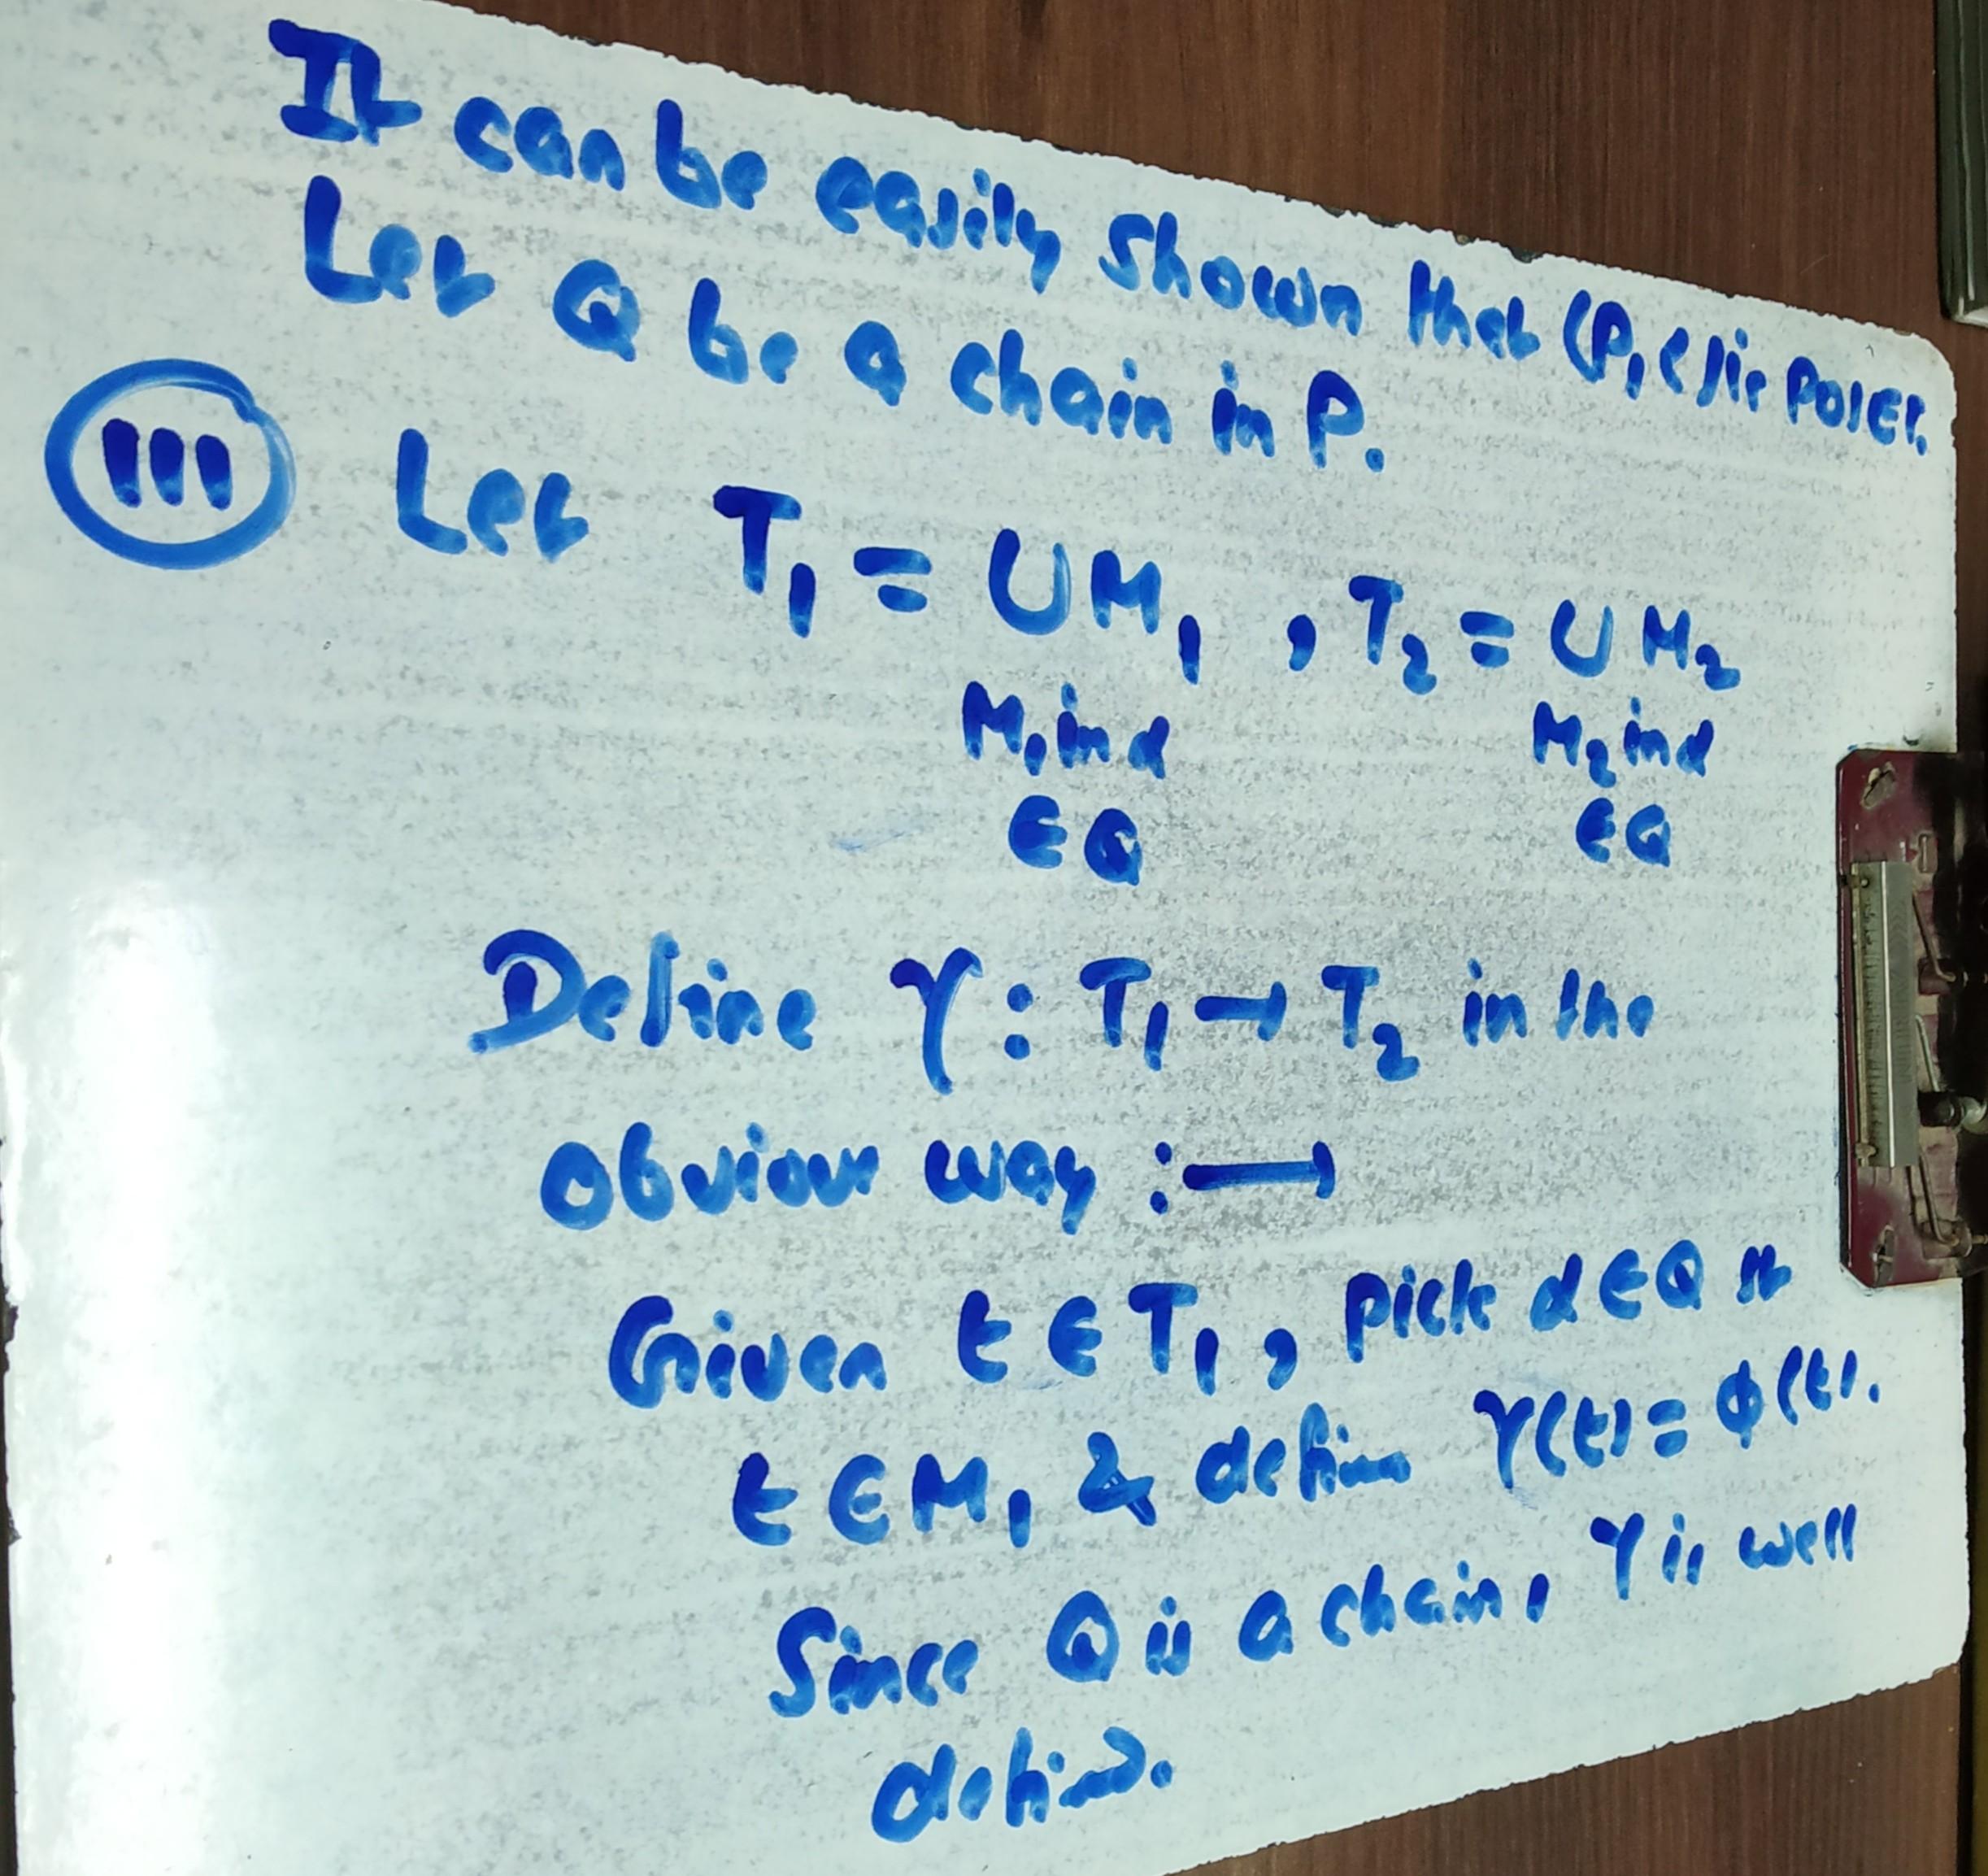 It can be easily shown that (P, ≤) is POSET.
Let Q be a chain in P.
III Let T₁ = ∪ M₁ , T₂ = ∪ M₂
M₁ in α M₂ in α
∈ Q ∈ Q
Define γ : T₁ → T₂ in the
obvious way :⟶
Given t ∈ T₁, pick α ∈ Q st
t ∈ M₁ & define γ(t) = ϕ(t).
Since Q is a chain, γ is well
defined.